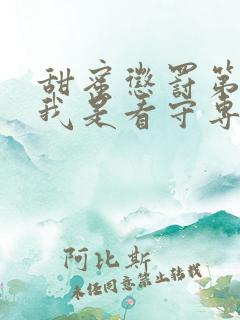 甜蜜惩罚第
我是看守专
阿比斯
未经同意禁止转载